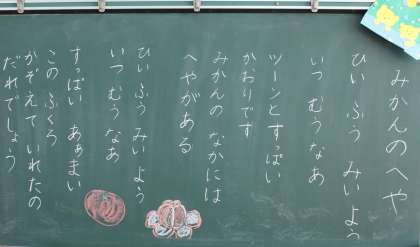 みかんのへや
ひい ふう みい よう
いつ むう なあ
ツーンとすっぱい
かおりです
みかんの なかには
へやがある
ひい ふう みい よう
いつ むう なあ
すっぱい あまい
この ふくろ
かぞえて いれたの
だれでしょう